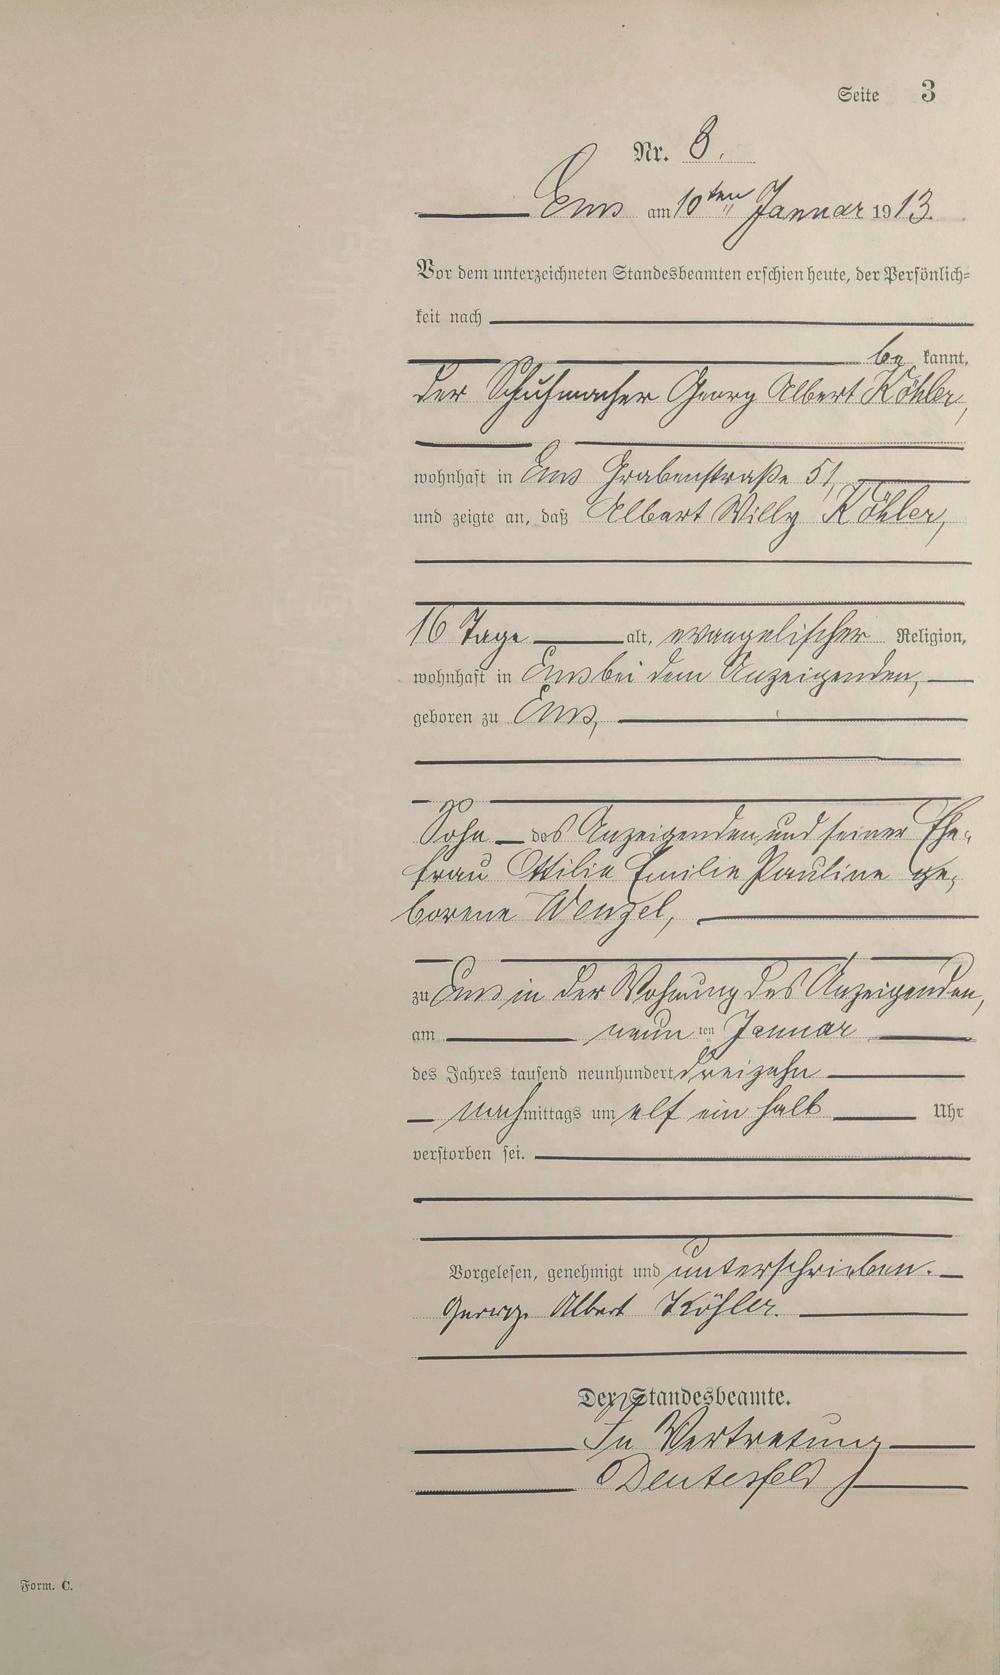 Seite 3
Nr. 8.
Ems am 10ten Januar 1913.
Vor dem unterzeichneten Standesbeamten erschien heute, der Persönlich=
keit nach
be kannt,
der Schuhmacher Georg Albert Köhler,
wohnhaft in Ems Grabenstraße 51,
und zeigte an, daß Albert Willy Köhler,
16 Tage alt, evangelischer Religion,
wohnhaft in Ems bei dem Anzeigenden,
geboren zu Ems,
Sohn des Anzeigenden und seiner Ehe-
frau Ottilie Emilie Pauline ge-
borene Wenzel,
zu Ems in der Wohnung des Anzeigenden,
am neun ten Januar
des Jahres tausend neunhundert dreizehn
nachmittags um elf ein halb Uhr
verstorben sei.
Vorgelesen, genehmigt und unterschrieben.
Georg Albert Köhler.
Der Standesbeamte.
In Vertretung
Deutesfeld
Form. C.